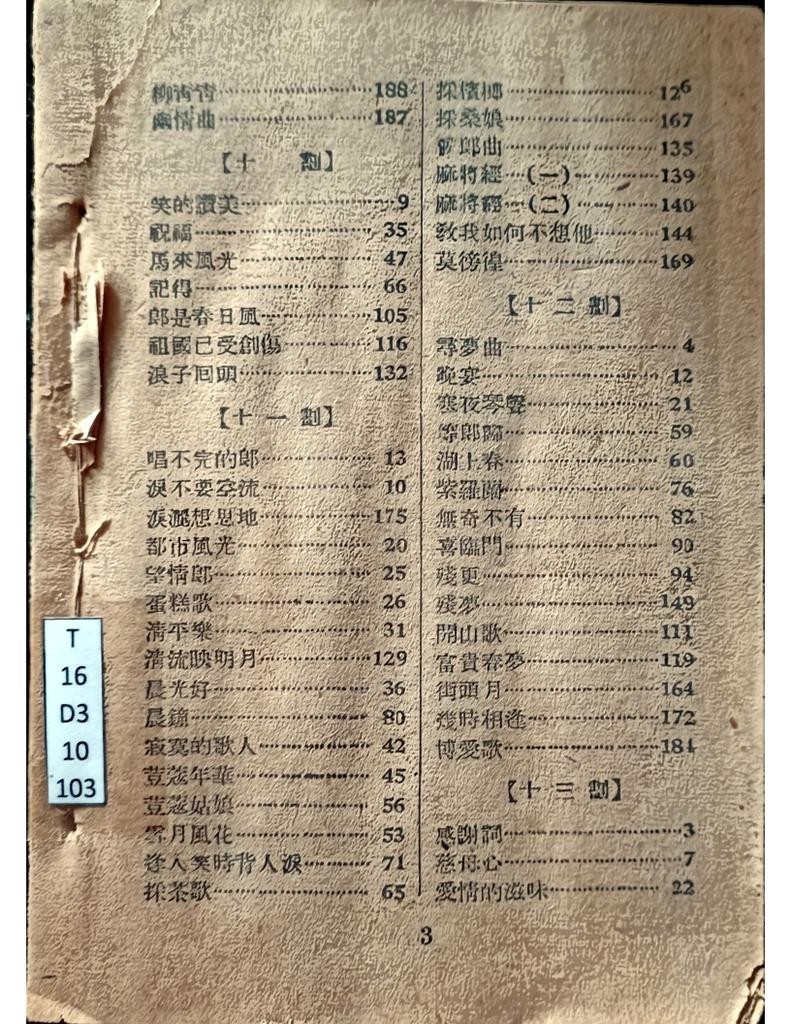 柳青青……188
幽情曲……187
【十　劃】
笑的讚美……9
祝福……35
馬來風光……47
記得……66
郎是春日風……105
祖國已受創傷……116
浪子回頭……132
【十一劃】
唱不完的郎……13
淚不要空流……10
淚灑想思地……175
都市風光……20
望情郎……25
蛋糕歌……26
清平樂……31
清流映明月……129
晨光好……36
晨鐘……80
寂寞的歌人……42
荳蔻年華……45
荳蔻姑娘……56
雪月風花……53
逢人笑時背人淚……71
採茶歌……65
採檳榔……126
採桑娘……167
郎曲……135
麻將經…(一)……139
麻將經…(二)……140
敎我如何不想他……144
莫徬徨……169
【十二劃】
尋夢曲……4
晚宴……12
寒夜琴聲……21
等郎歸……59
湖上春……60
紫羅蘭……76
無奇不有……82
喜臨門……90
殘更……94
殘夢……149
開山歌……111
富貴春夢……119
街頭月……164
幾時相逢……172
博愛歌……184
【十三劃】
感謝詞……3
慈母心……7
愛情的滋味……22
3
T
16
D3
10
103